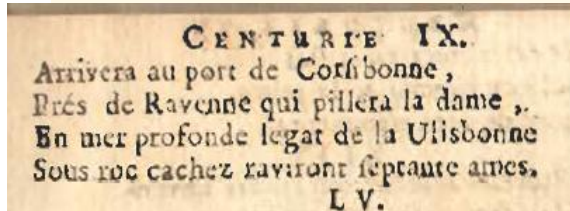 CENTURIE IX.
Arrivera au port de Corsibonne,
Prés de Ravenne qui pillera la dame,
En mer profonde legat de la Ulisbonne
Sous roc cachez raviront septante ames.
LV.